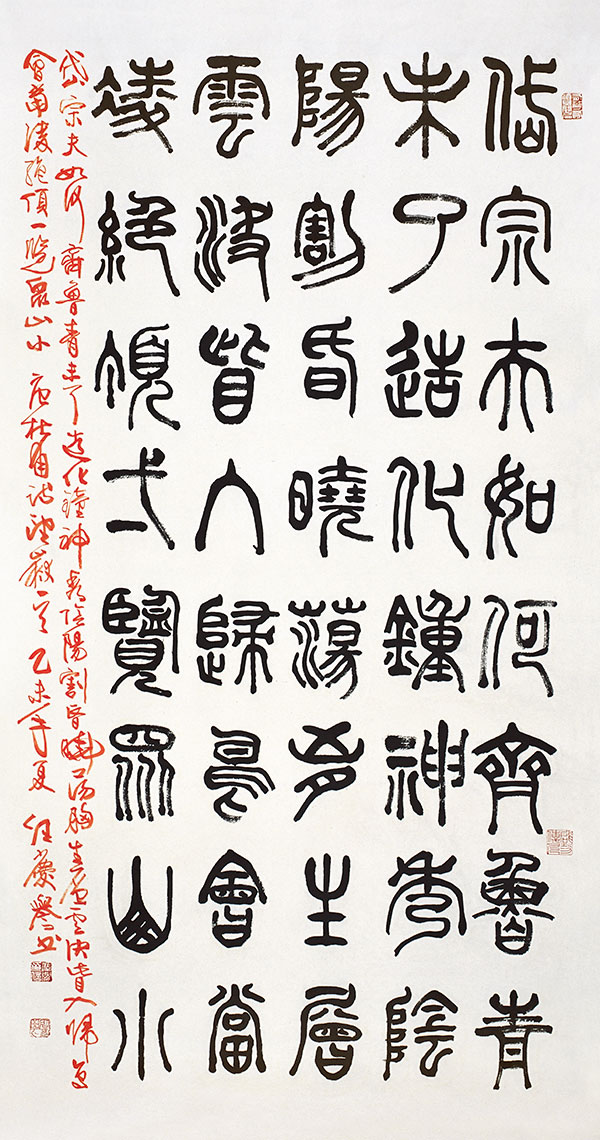 岱宗夫如何齊魯青
未了造化鍾神秀陰
陽割昏曉蕩胸生層
雲決眥入歸鳥會當
凌絕頂弌覽眾山小
岱宗夫如何齊魯青未了造化鐘神秀陰陽割昏曉蕩胸生層雲決眥入歸鳥
會當凌絕頂一覽眾山小 唐杜甫詩望嶽一首 乙未年夏 任慶書